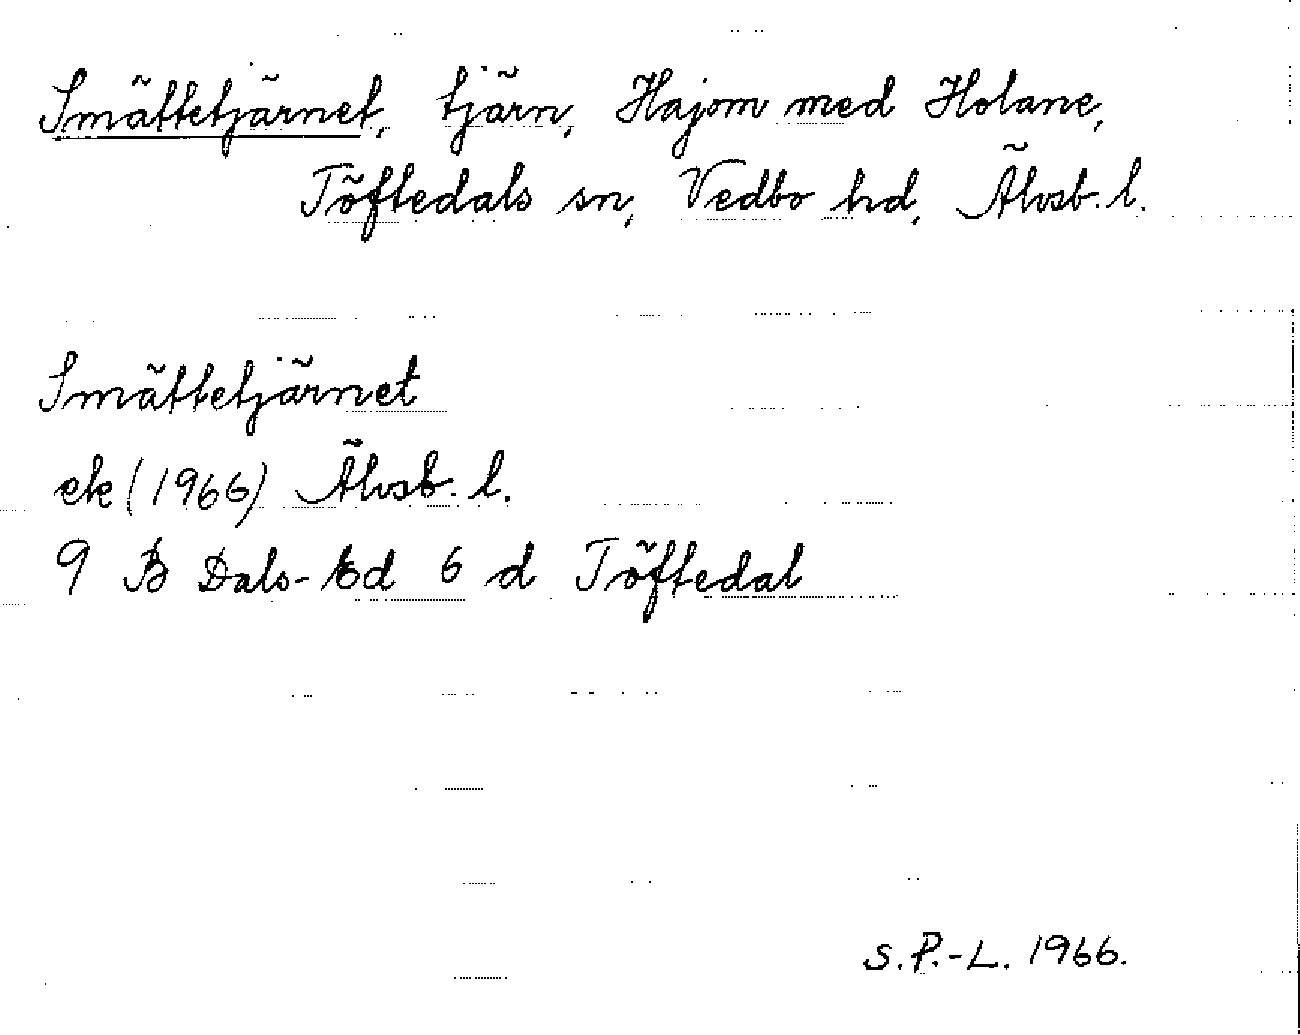 Smättetjärnet, tjärn, Hajom med Holane,
Töftedals sn, Vedbo hd, Älvsb. l.
Smättetjärnet
ek (1966) Älvsb. l.
9 B Dals-Ed 6 d Töftedal
S. P.-L. 1966.